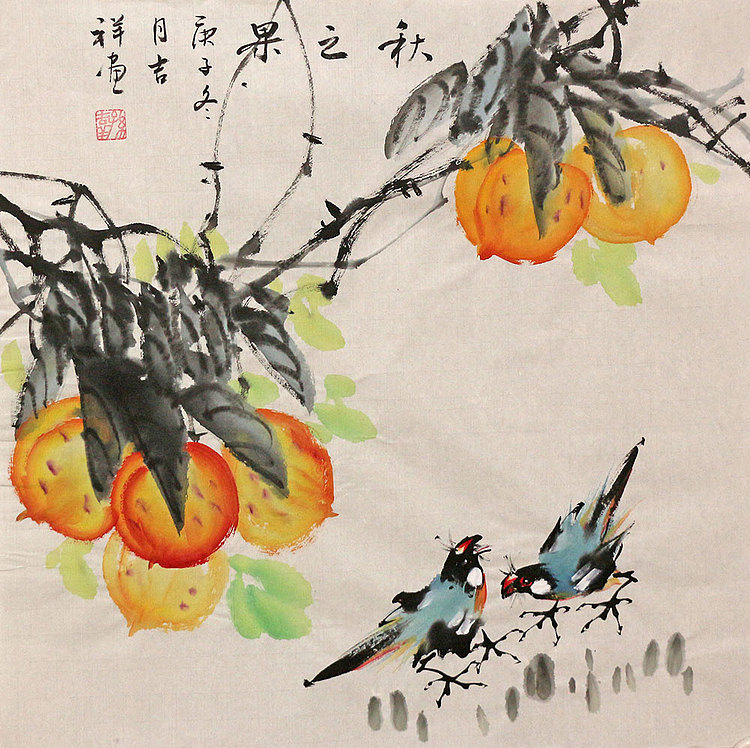 秋之果
庚子冬
月吉
祥画